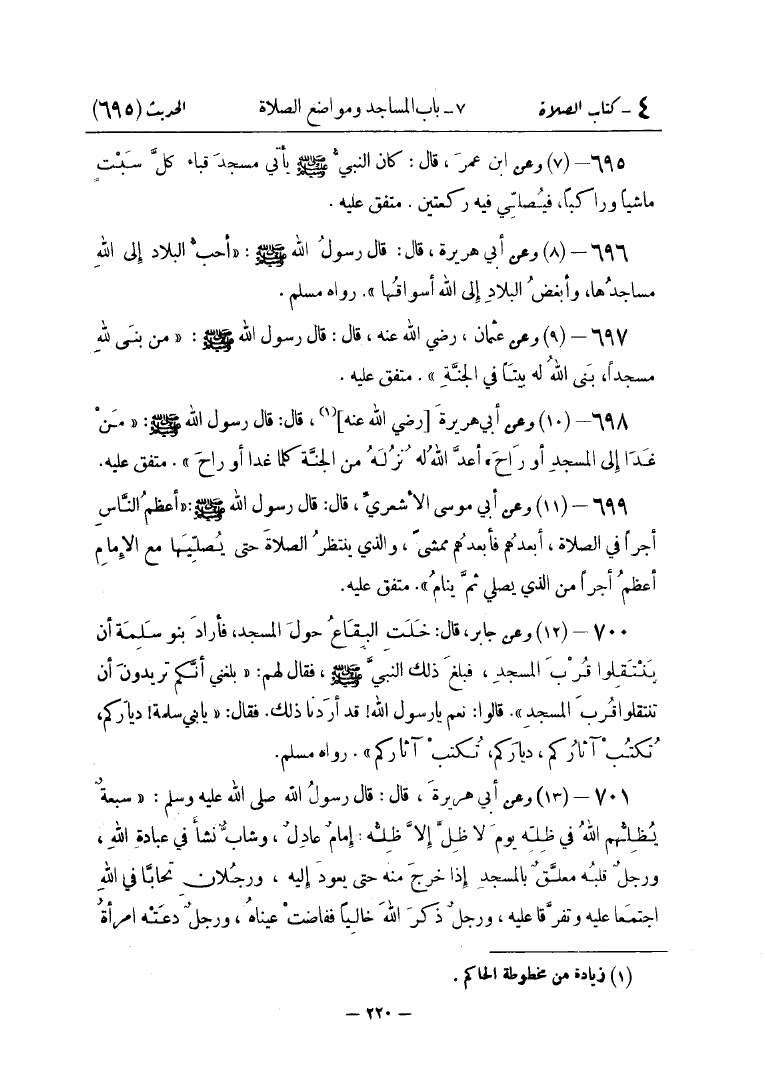 ٤ - كتاب الصلاة ٧ - باب المساجد ومواضع الصلاة الحديث (٦٩٥)
٦٩٥ - (٧) وعن ابن عمرَ ، قال : كان النبيُّ ﷺ يأتي مسجدَ قباء كلَّ سَبْتٍ
ماشياً وراكباً، فيُصلّي فيه ركعتين . متفق عليه .
٦٩٦ - (٨) وعن أبي هريرة ، قال: قال رسولُ الله ﷺ : «أحبُّ البلاد إلى اللهِ
مساجدُها، وأبغضُ البلادِ إلى الله أسواقُها ». رواه مسلم .
٦٩٧ - (٩) وعن عثمان ، رضي الله عنه ، قال : قال رسول الله ﷺ : « من بنَى للهِ
مسجداً، بَنى اللهُ له بيتاً في الجنَّةِ » . متفق عليه .
٦٩٨ - (١٠) وعن أبي هريرةَ [رضي الله عنه](١) ، قال: قال رسول الله ﷺ: « مَنْ
غَدَا إلى المسجدِ أو رَاحَ، أعدَّ اللهُ له نُزُلَهُ من الجنَّة كلما غدا أو راحَ » . متفق عليه.
٦٩٩ - (١١) وعن أبي موسى الأشعريِّ ، قال: قال رسول الله ﷺ :«أعظمُ النَّاسِ
أجراً في الصلاة ، أبعدُهم فأبعدُهم ممشىً ، والذي ينتظرُ الصلاةَ حتى يُصلّيَها مع الإمامِ
أعظمُ أجراً من الذي يصلي ثمَّ ينامُ». متفق عليه.
٧٠٠ - (١٢) وعن جابر، قال: خَلَتِ البِقاعُ حولَ المسجد، فأرادَ بنو سَلِمَة أن
يَنْتَقِلوا قُرْبَ المسجدِ ، فبلغَ ذلك النبيَّ ﷺ ، فقال لهم: « بلغني أنَّكم تريدونَ أن
تنتقلوا قربَ المسجد ». قالوا: نعم يارسول الله! قد أردنا ذلك. فقال: « يابني سلمة! دياركم،
تُكتَبْ آثارُكم ، ديارَكم، تُكتبْ آثاركم» . رواه مسلم.
٧٠١ - (١٣) وعن أبي هريرةَ ، قال : قال رسولُ الله صلى الله عليه وسلم : « سبعةٌ
يُظلِّهُم اللهُ في ظلِّه يومَ لا ظلَّ إلاَّ ظلُّه : إمامٌ عادلٌ ، وشابٌّ نشأ في عبادة الله ،
ورجلٌ قلبُه معلَّقٌ بالمسجدِ إذا خرجَ منه حتى يعودَ إليه ، ورجُلانِ تحابَّا في اللهِ
اجتمَعا عليه وتفرَّقا عليه ، ورجلٌ ذكرَ اللهَ خالياً ففاضتْ عيناهُ ، ورجلٌ دعَتْه امرأةٌ
(١) زيادة من مخطوطة الحاكم .
— ٢٢٠ —